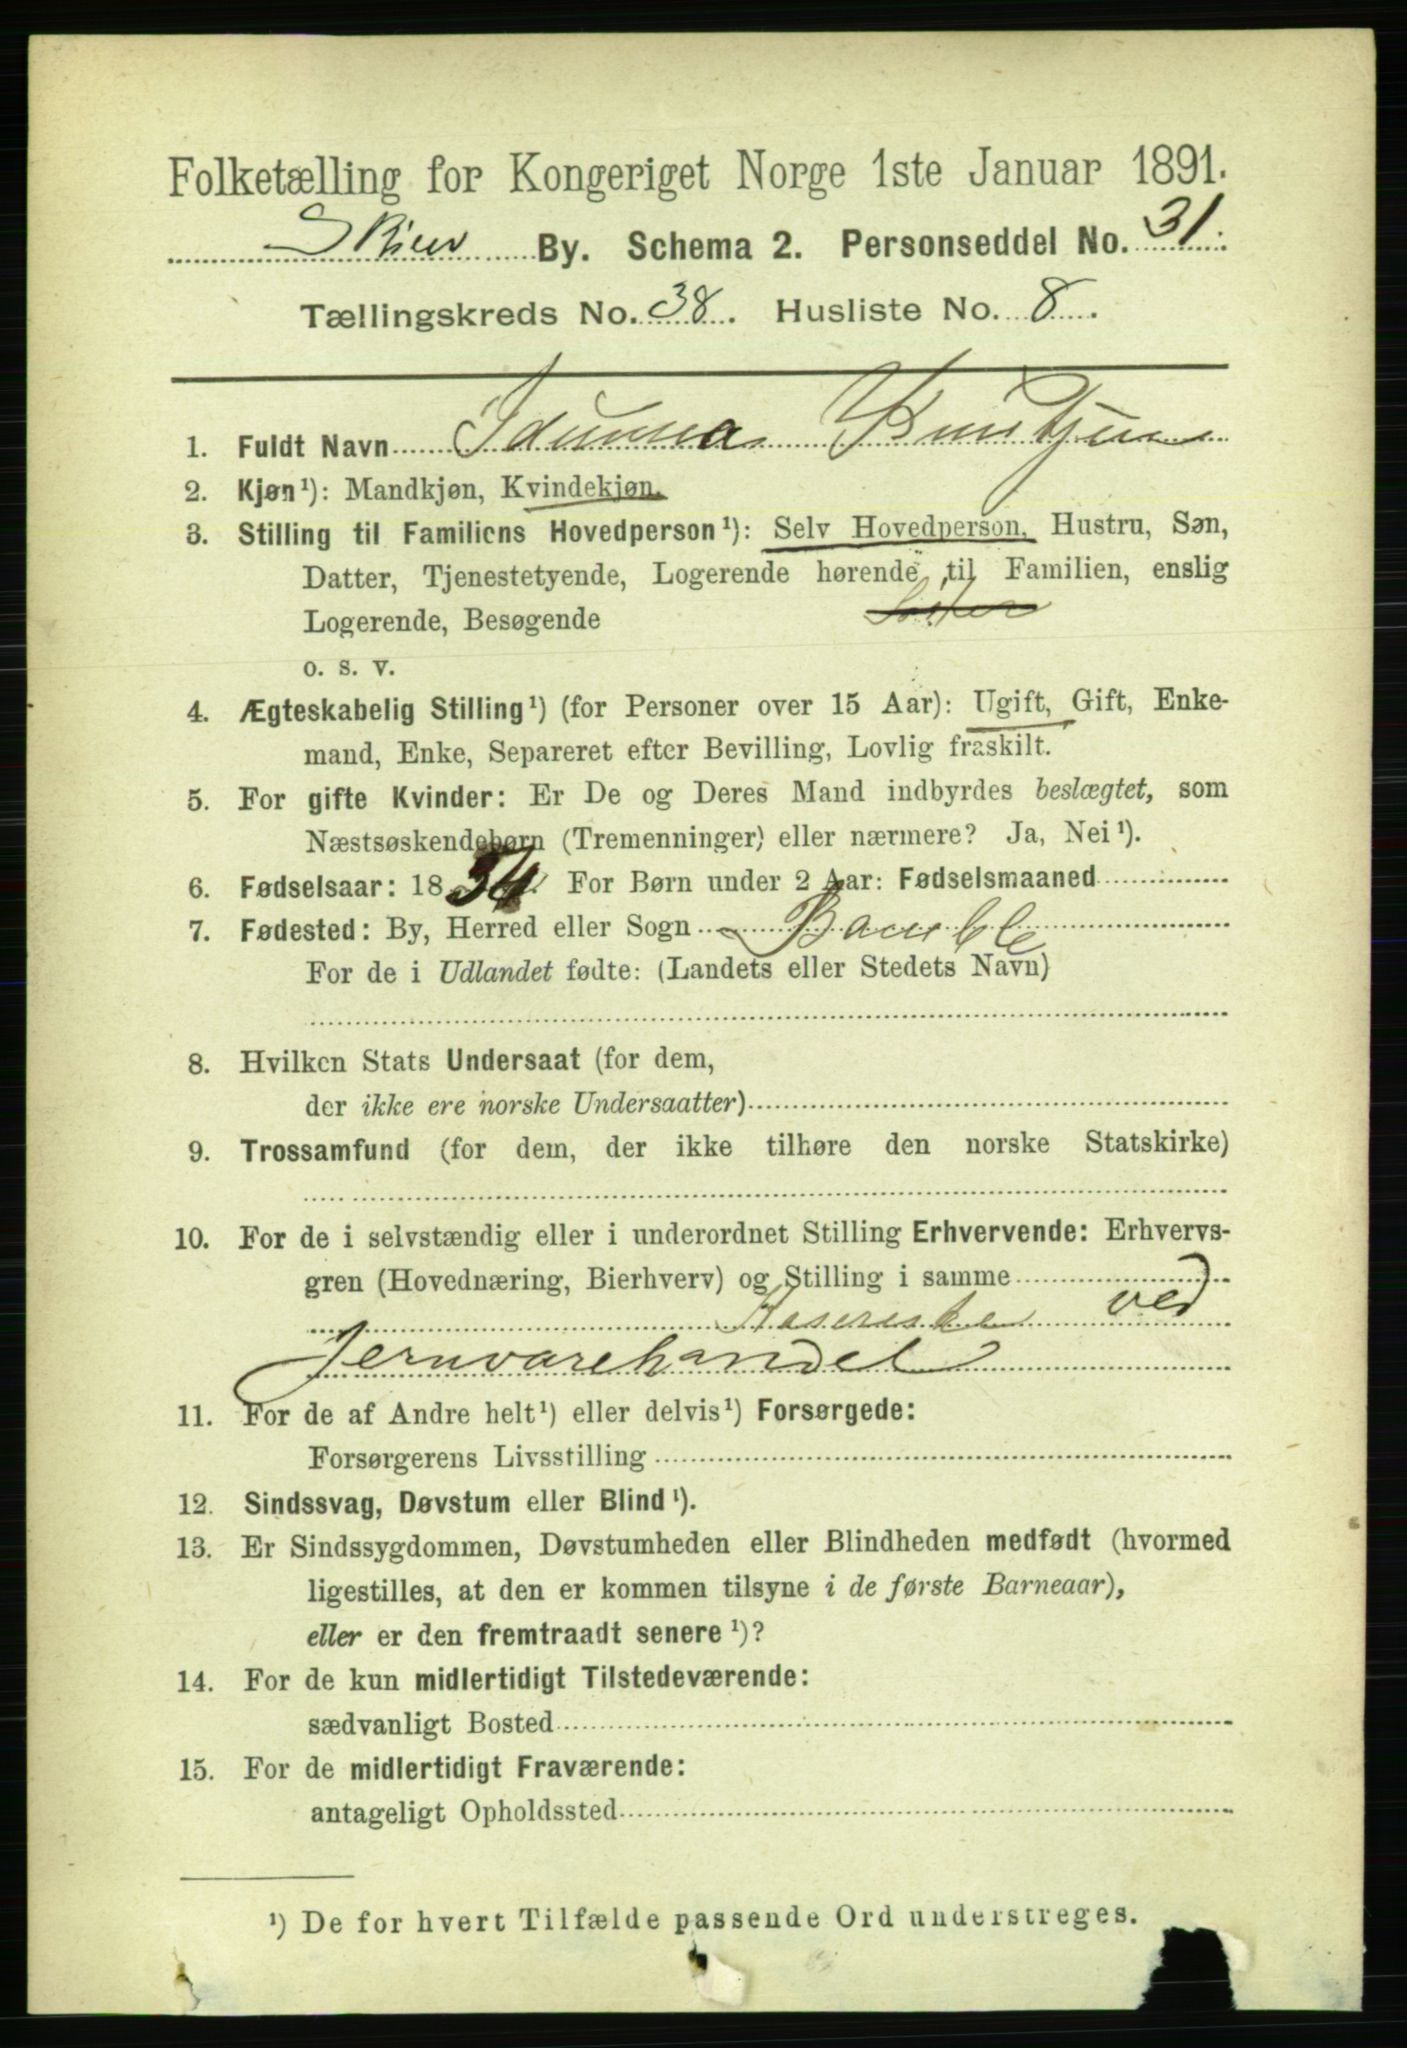 Folketælling for Kongeriget Norge 1ste Januar 1891.
Skien By. Schema 2. Personseddel No. 31.
Tællingskreds No. 38. Husliste No. 8.
1. Fuldt Navn Idunna
2. Kjøn¹): Mandkjøn, Kvindekjøn.
3. Stilling til Familiens Hovedperson¹): Selv Hovedperson, Hustru, Søn,
Datter, Tjenestetyende, Logerende hørende til Familien, enslig
Logerende, Besøgende
o. s. v.
4. Ægteskabelig Stilling¹) (for Personer over 15 Aar): Ugift, Gift, Enke-
mand, Enke, Separeret efter Bevilling, Lovlig fraskilt.
5. For gifte Kvinder: Er De og Deres Mand indbyrdes beslægtet, som
Næstsøskendebørn (Tremenninger) eller nærmere? Ja, Nei¹).
6. Fødselsaar: 1854. For Børn under 2 Aar: Fødselsmaaned
7. Fødested: By, Herred eller Sogn Bamble
For de i Udlandet fødte: (Landets eller Stedets Navn)
8. Hvilken Stats Undersaat (for dem,
der ikke ere norske Undersaatter)
9. Trossamfund (for dem, der ikke tilhøre den norske Statskirke)
10. For de i selvstændig eller i underordnet Stilling Erhvervende: Erhvervs-
gren (Hovednæring, Bierhverv) og Stilling i samme
ved
Jernvarehandel
11. For de af Andre helt¹) eller delvis¹) Forsørgede:
Forsørgerens Livsstilling
12. Sindssvag, Døvstum eller Blind¹).
13. Er Sindssygdommen, Døvstumheden eller Blindheden medfødt (hvormed
ligestilles, at den er kommen tilsyne i de første Barneaar),
eller er den fremtraadt senere¹)?
14. For de kun midlertidigt Tilstedeværende:
sædvanligt Bosted
15. For de midlertidigt Fraværende:
antageligt Opholdssted
¹) De for hvert Tilfælde passende Ord understreges.